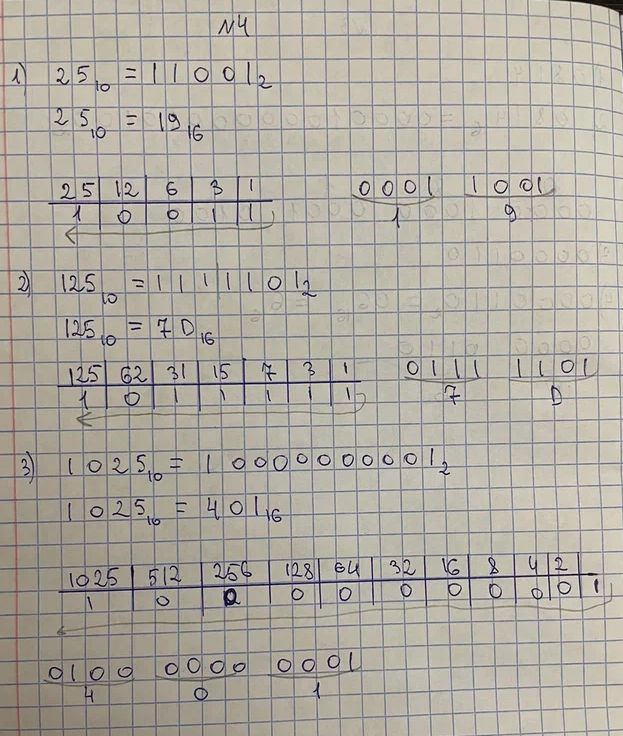 №4
1) 25₁₀ = 11001₂
25₁₀ = 19₁₆
25 12 6 3 1 0001 1001
1 0 0 1 1 1 9
2) 125₁₀ = 1111101₂
125₁₀ = 7D₁₆
125 62 31 15 7 3 1 0111 1101
1 0 1 1 1 1 1 7 D
3) 1025₁₀ = 10000000001₂
1025₁₀ = 401₁₆
1025 512 256 128 64 32 16 8 4 2
1 0 0 0 0 0 0 0 0 0 1
0100 0000 0001
4 0 1